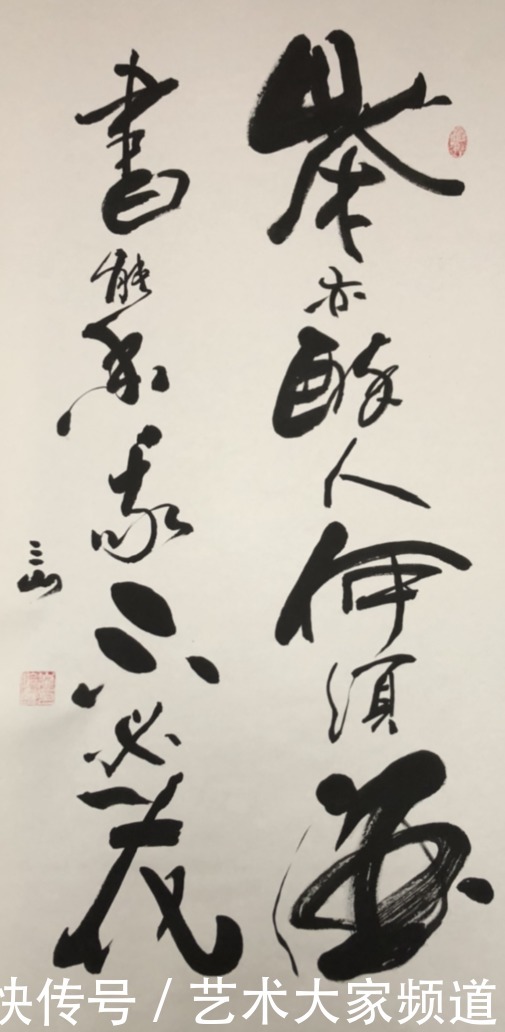 茶亦醉人何須酒
書能香我不必花
三山
快传号 / 艺术大家频道